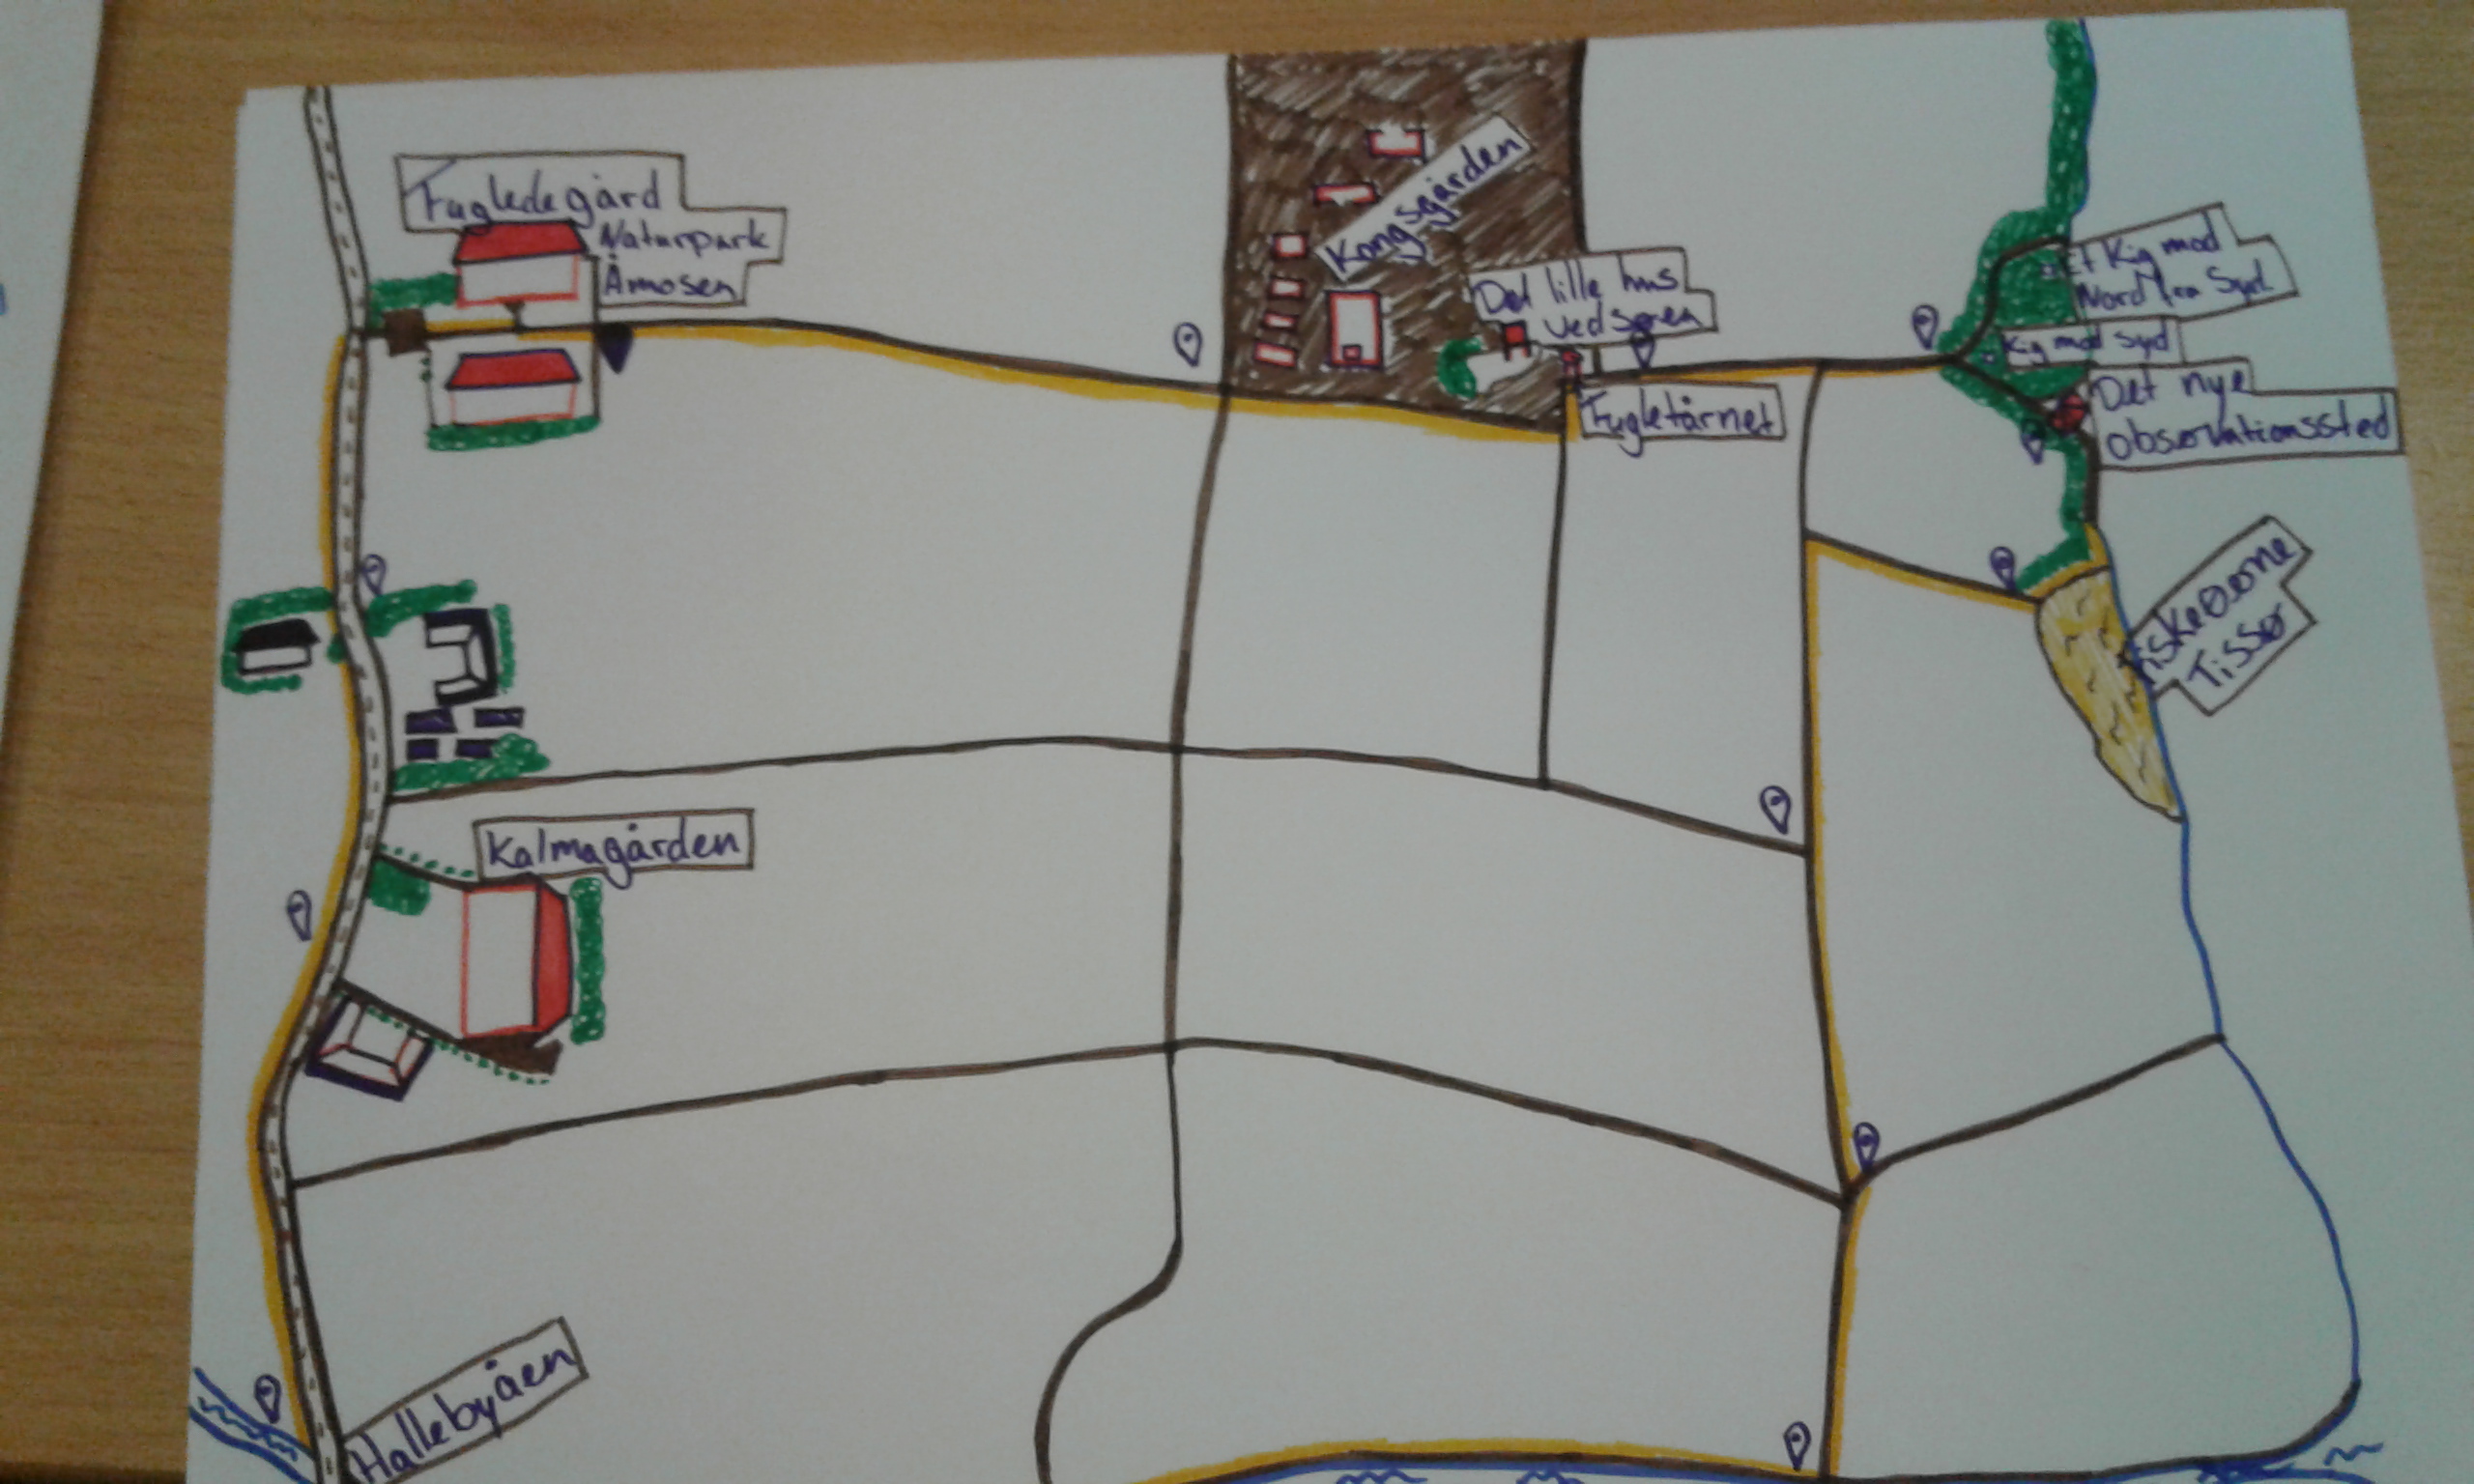 Fugledegård
Naturpark
Åmosen
Kongsgården
Det lille hus
ved søren
Fugletårnet
Et Kig mod
Nord fra Syd
Kig mod syd
Det nye
observationssted
FiskeØerne
Tissø
Kalmagården
Hallebyåen